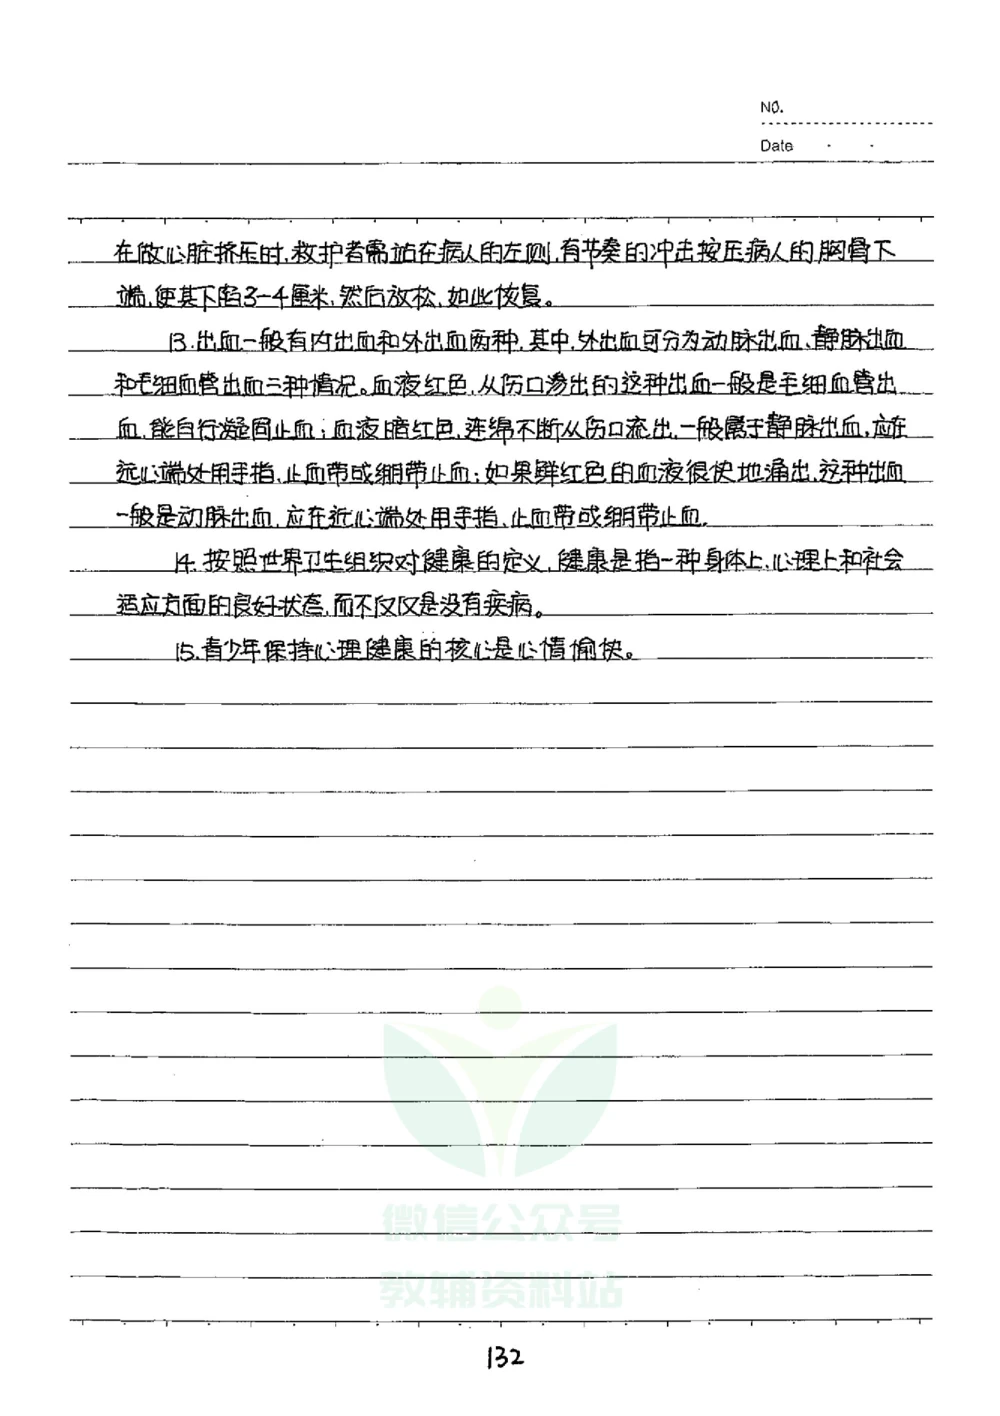 No.
Date
在做心脏挤压时,救护者需站在病人的左侧,有节奏的冲击按压病人的胸骨下
端,使其下陷3-4厘米,然后放松,如此恢复。
13.出血一般有内出血和外出血两种,其中,外出血可分为动脉出血、静脉出血
和毛细血管出血三种情况。血液红色,从伤口渗出的这种出血一般是毛细血管出
血,能自行凝固止血;血液暗红色,连绵不断从伤口流出,一般属于静脉出血,应在
远心端处用手指、止血带或绷带止血;如果鲜红色的血液很快地涌出,这种出血
一般是动脉出血,应在近心端处用手指、止血带或绷带止血.
14.按照世界卫生组织对健康的定义,健康是指一种身体上、心理上和社会
适应方面的良好状态,而不仅仅是没有疾病。
15.青少年保持心理健康的核心是心情愉快。
微信公众号
教辅资料站
132